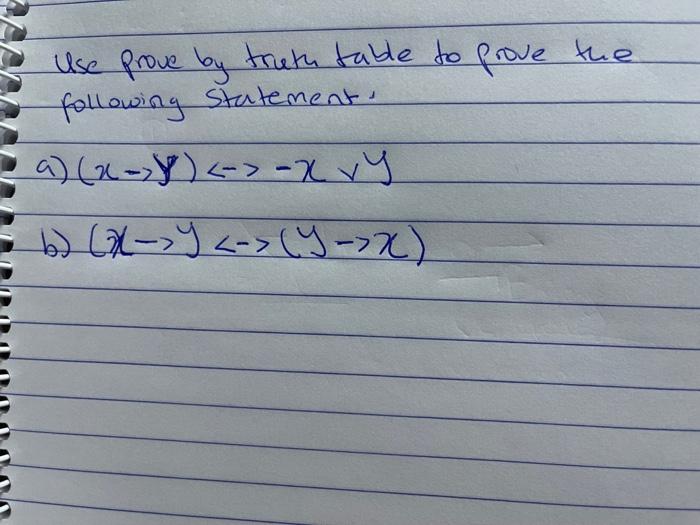 Use prove by truth table to prove the
following Statement.
a) (x -> Y) <-> -x v y
b) (x -> y <-> (y -> x)